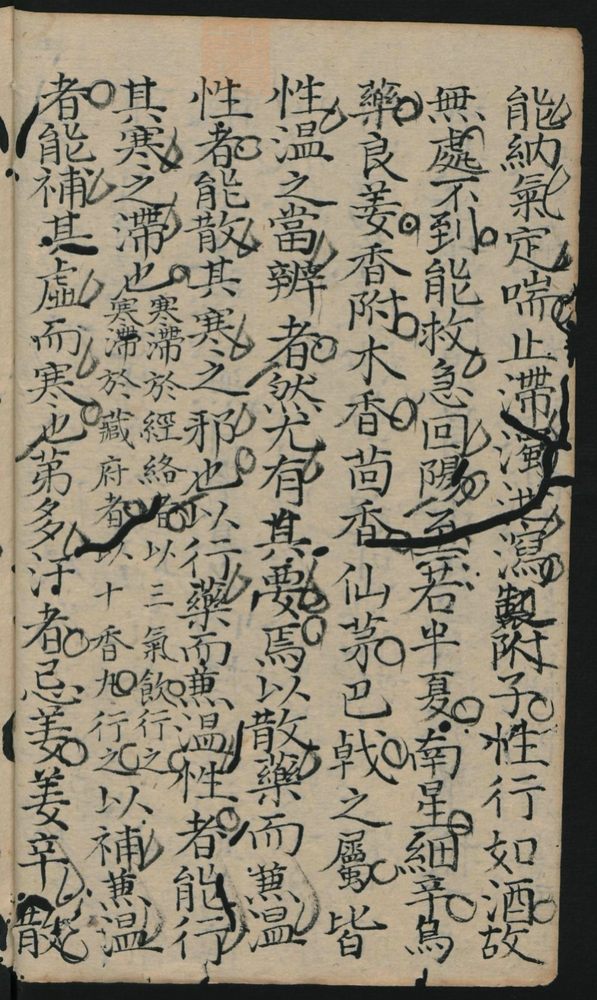 能納氣定喘止滯濁洩瀉製附子性行如酒故
無處不到能救急回陽至若半夏南星細辛烏
藥良姜香附木香茴香仙茅巴戟之屬皆
性溫之當辨者然尤有其要焉以散藥而兼溫
性者能散其寒之邪也以行藥而兼溫性者能行
其寒之滯也寒滯於經絡者以三氣飲行之寒滯於藏府者以十香丸行之以補兼溫
者能補其虛而寒也第多汗者忌姜姜辛散